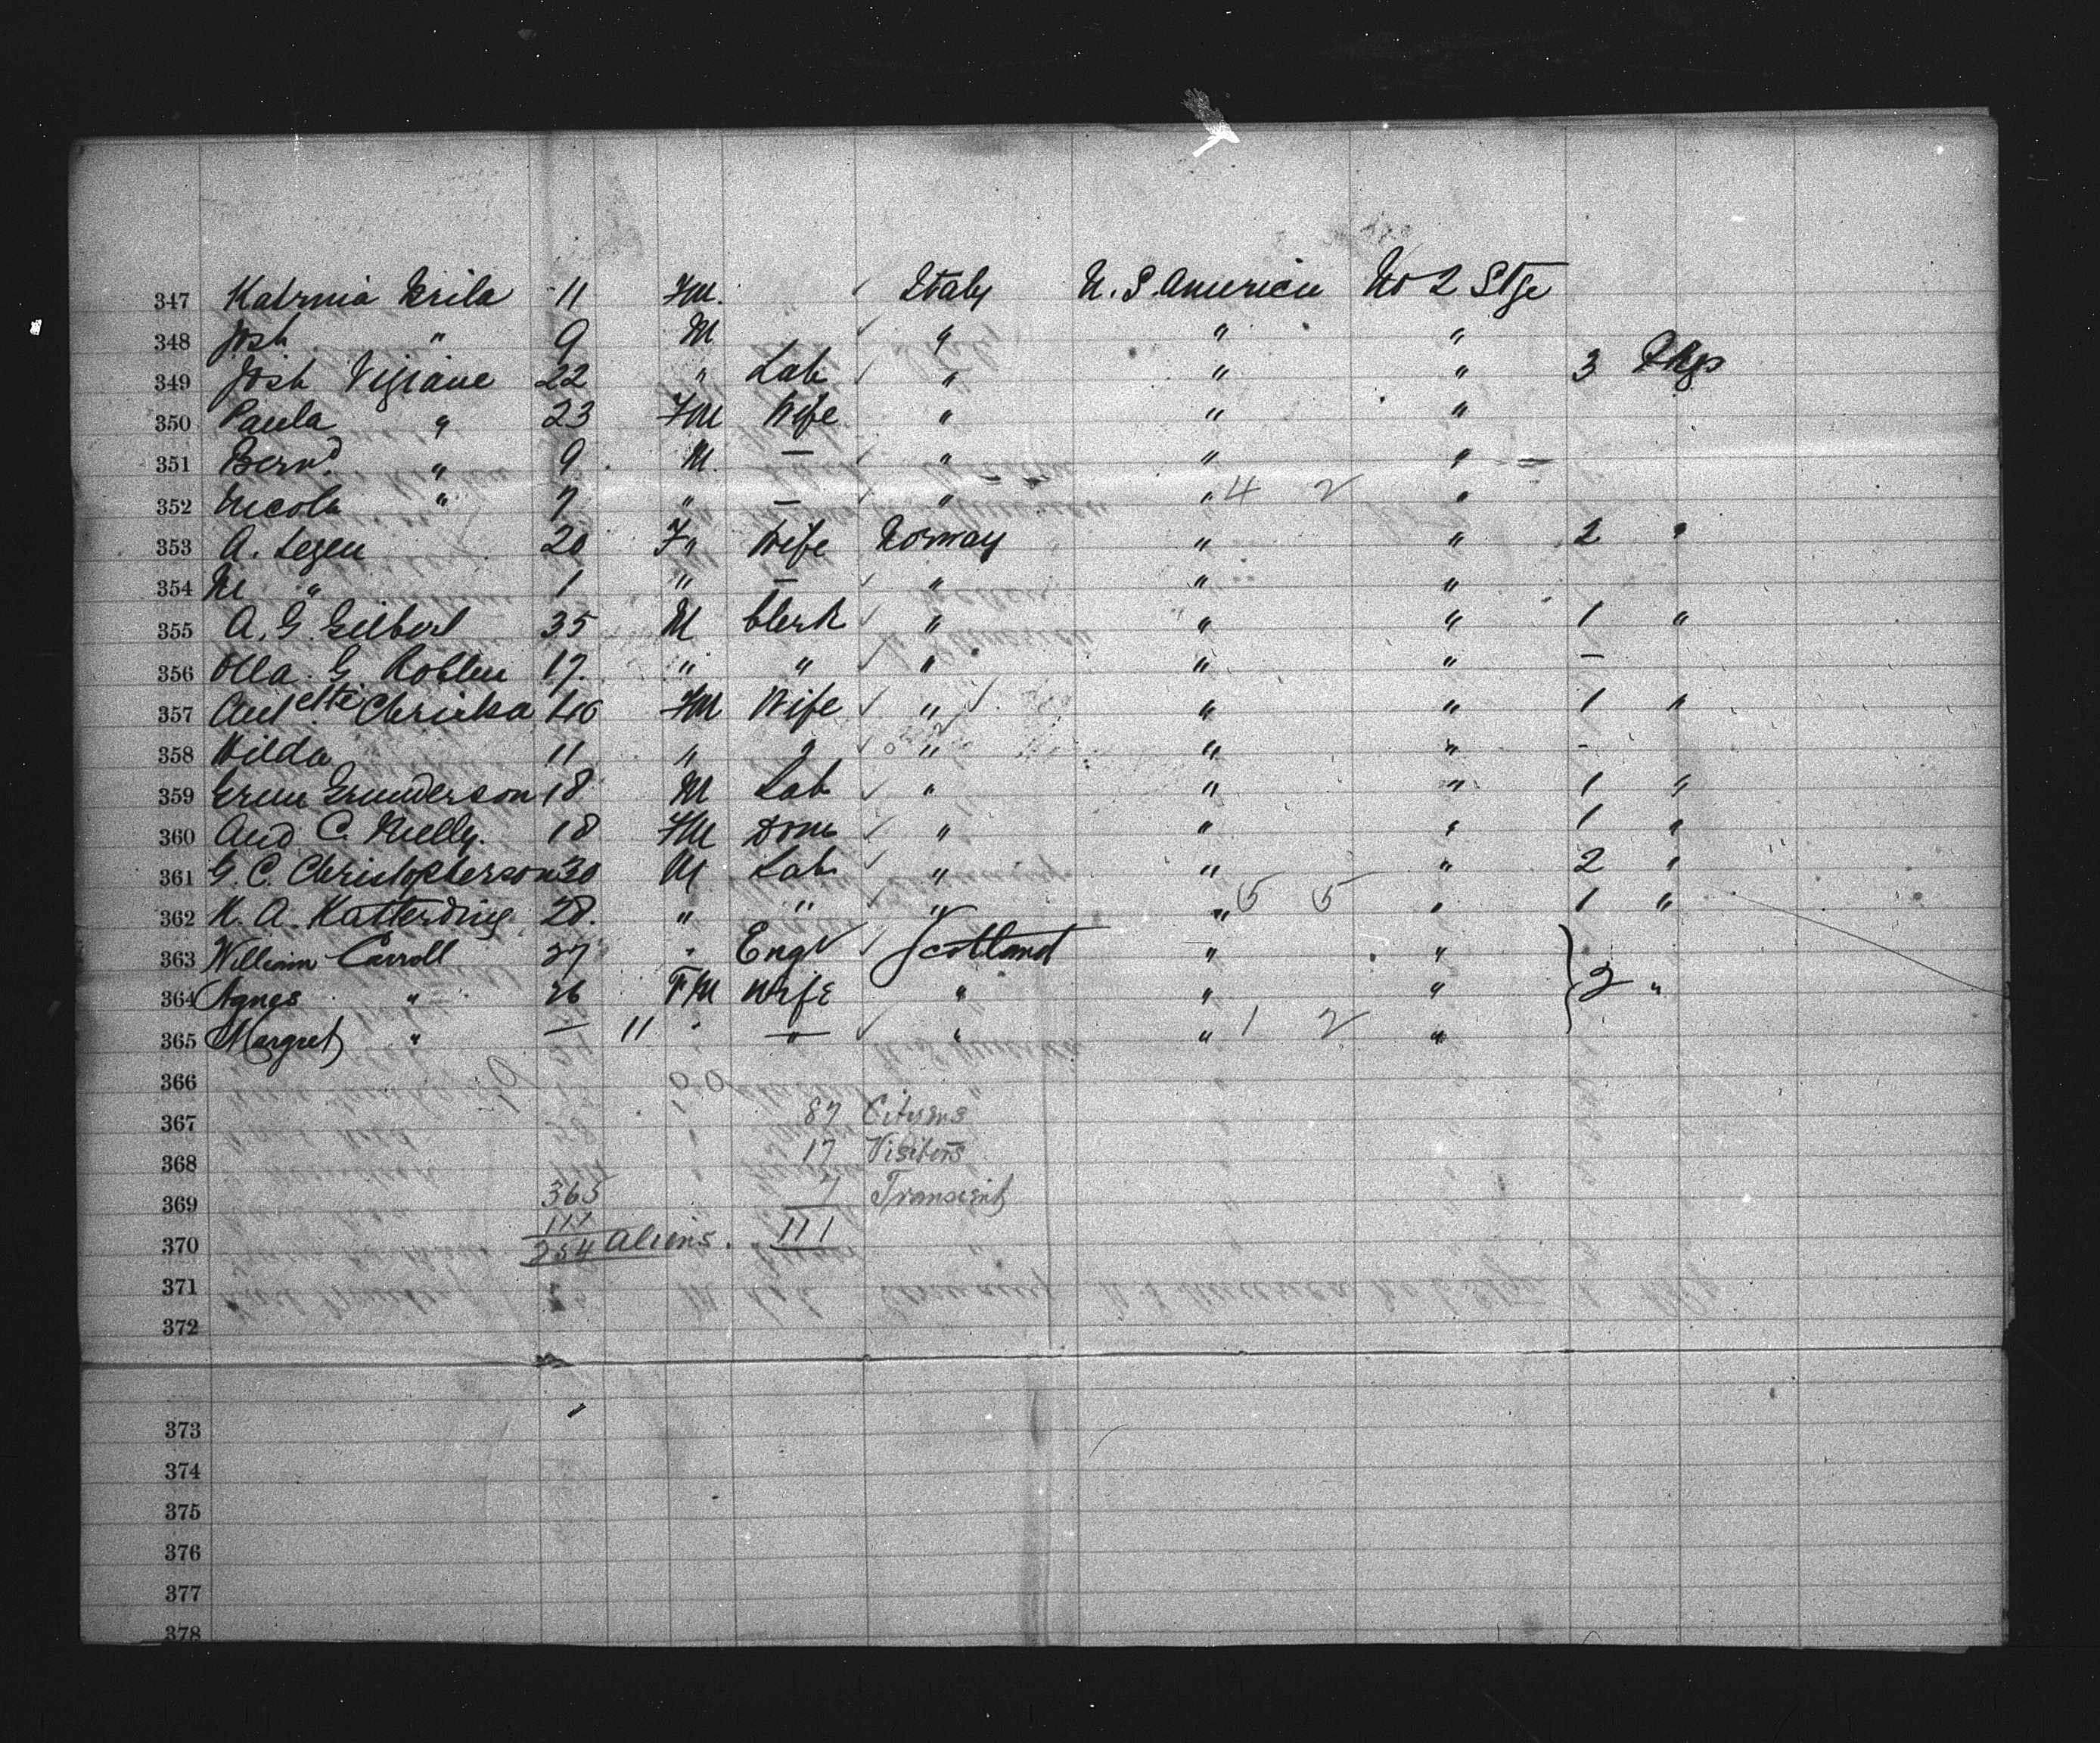 347 Katrina Grila 11 FM. ✓ Italy U. S. America No 2 Stge
348 Josh " 9 M ✓ " " "
349 Josh Vigiane 22 " Lab ✓ " " " 3 Pkgs
350 Paula " 23 FM Wife " " "
351 Bernd. " 9 M. — " " "
352 Nicola " 7 " — " " 4 2 "
353 A. Legen 20 F " Wife Norway " " 2 "
354 M " 1 " — ✓ " " "
355 A. G. Gilbert 35 M Clerk ✓ " " " 1 "
356 Olla G 17. " " ✓ " " " —
357 Antette 40 FM Wife ✓ " " " 1 "
358 Hilda 11 " ✓ " " " -
359 Gunderson 18 M Lab ✓ " " " 1 "
360 And. C. 18 FM Dom ✓ " " " 1 "
361 G. C. Christopherson 30 M Lab ✓ " " " 2 "
362 K. A. Katterding 28. " " ✓ " " 5 5 " 1 "
363 William Carroll 37 " Engr ✓ Scotland " "
364 Agnes " 26 FM Wife " " " 2 "
365 Margret " — 11 " — ✓ " " 1 2 "
366
367 87 Citizens
368 17 Visitors
369 365 7 Transient
370 111 111
254 Aliens.
371
372
373
374
375
376
377
378